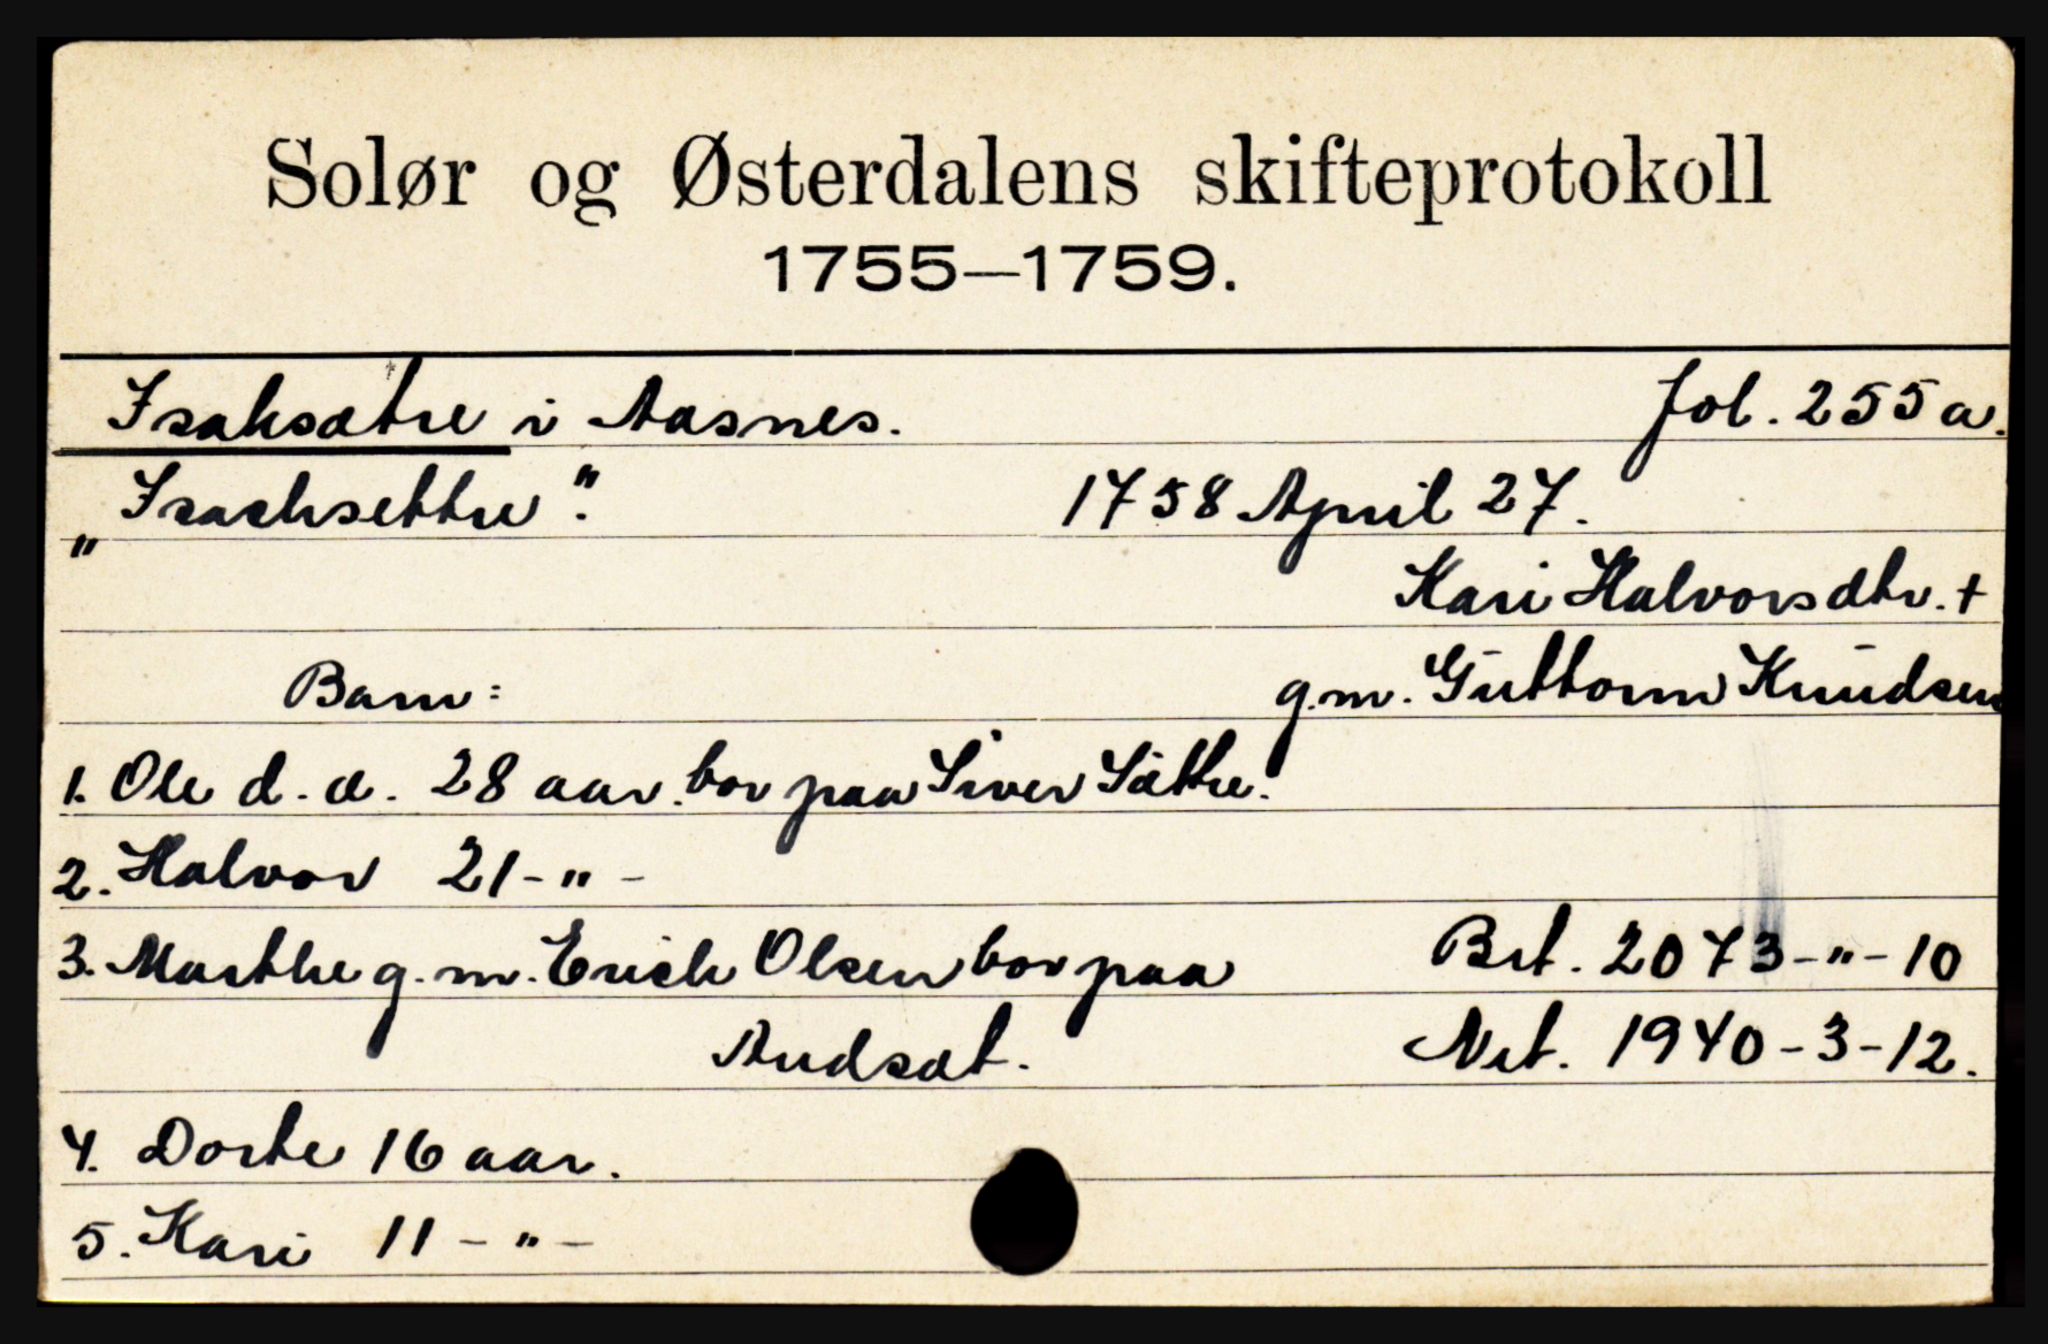 Solør og Østerdalens skifteprotokoll
1755—1759.
Isaksætre i Aasnes. fol. 255 a.
„Isachsettre". 1758 April 27.
Kari Halvorsdtr. +
Barn: g.m. Guttorm Knudsen
1. Ole d. æ. 28 aar. bor paa Siver Sättre.
2. Halvor 21 - " -
3. Marthe g. m. Erich Olsen bor paa Brt. 2073 - " - 10
Audsæt. Net. 1940 - 3 - 12.
4. Dorte 16 aar.
5. Kari 11 - " -